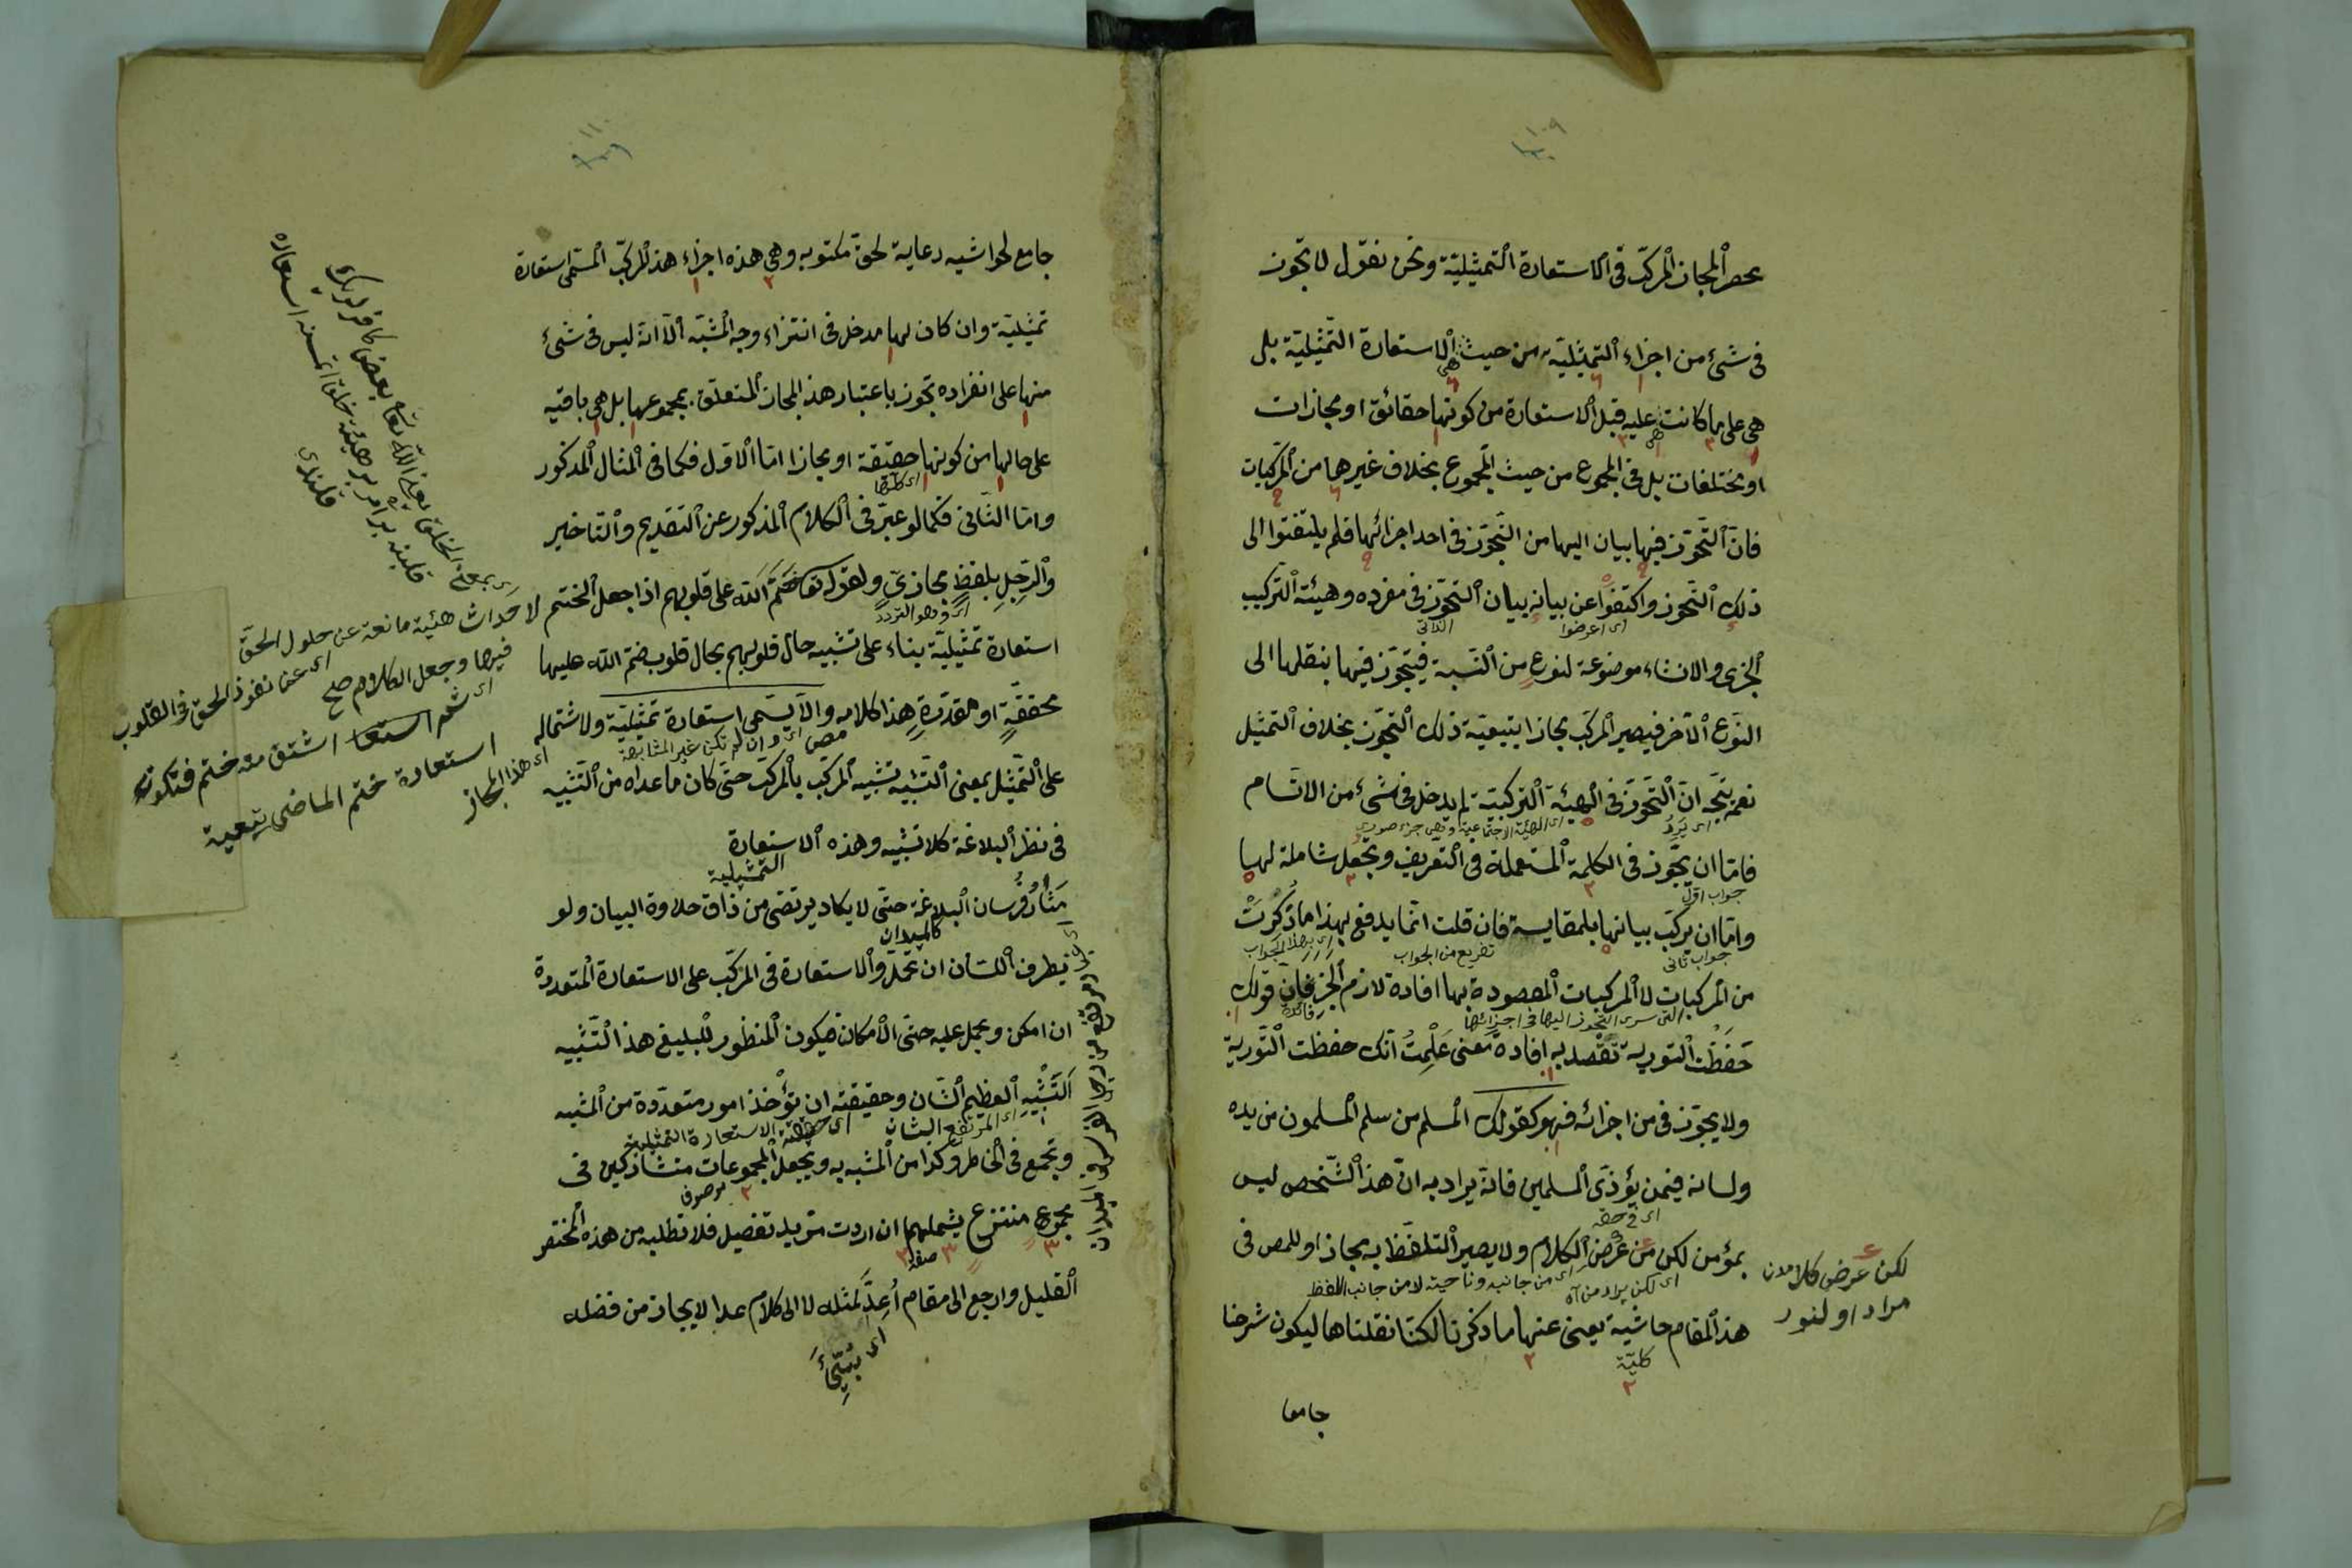 ١٠٩
بحصر المجاز المركب فى الاستعارة التمثيلية ونحن نقول لا تجوز
فى شئ من اجزاء التمثيلية من حيث هى الاستعارة التمثيلية بل
هى على ما كانت هى عليه قبل الاستعارة من كونها حقائق او مجازات
او مختلفات بل فى المجموع من حيث المجموع بخلاف غيرها من المركبات
فان التجوز فيها بيان اليها من التجوز فى احد اجزائها فلم يلتفتوا الى
ذلك التجوز واكتفوا عن بيانه بيان التجوز فى مفرده وهيئة التركيب
اى اعرضوا
الخبرى والانشاء موضوعة لنوع من النسبة فيتجوز فيها بنقلها الى
النوع الآخر فيصير المركب مجازا بتبعية ذلك التجوز بخلاف التمثيل
نعم يتجه ان التجوز فى الهيئة التركيبية لم يدخل فى شئ من الاقسام
اى يرد اى الهيئة الاجتماعية وهى جزء صورى
فاما ان يتجوز فى الكلمة المستعملة فى التعريف ويجعل شاملة لها
جواب اول
واما ان يركب بيانها بالمقايسة فان قلت انما يدفع بهذا ما ذكرت
جواب ثانى تفريع من الجواب اى بهذا الجواب
من المركبات لا المركبات المقصودة بها افادة لازم الخبر فان قولك
التى سرى التجوز اليها فى اجزائها
حفظت التورية تقصد به افادة معنى علمت انك حفظت التورية
ولا يجوز فى من اجزائه فهو كقولك المسلم من سلم المسلمون من يده
ولسانه فيمن يؤذى المسلمين فانه يراد به ان هذا الشخص ليس
اى فى حقه
بمؤمن لكن من عرض الكلام ولا يصير التلفظ به مجازا وللمص فى
اى لكن يراد من آه اى من جانبه وناحيته لا من جانب اللفظ
هذا المقام حاشية يعنى عنها ما ذكرنا لكنا نقلناها ليكون شرحنا
كلية
جامعا
لكن عرض كلامدن
مراد اولنور
١١٠
جامع لحواشيه رعاية لحق مكتوبه وهى هذه اجزاء هذا المركب المسمى استعارة
تمثيلية وان كان لها مدخل فى انتزاء وجه الشبه الا انه ليس فى شئ
منها على انفراده تجوز باعتبار هذا المجاز المتعلق بمجموعها بل هى باقية
على حالها من كونها حقيقة او مجازا اما الاول فكما فى المثال المذكور
واما الثانى فكما لو عبر فى الكلام المذكور عن التقديم والتاخير
والرجل بلفظ مجازى وكقوله تعا ختم الله على قلوبهم اذا جعل الختم
اى وهو التردد
استعارة تمثيلية بناء على تشبيه حال قلوبهم بحال قلوب ختم الله عليها
محققة او مقدرة هذا كلامه والا يسمى استعارة تمثيلية ولاشتماله
اى وان لم تكن غير المشابهة
على التمثيل بمعنى التشبيه تشبيه المركب بالمركب حتى كان ما عداه من التشبيه
فى نظر البلاغة كلا تشبيه وهذه الاستعارة
التمثيلية
مثار فرسان البلاغة حتى لا يكاد يرتضى من ذاق حلاوة البيان ولو
كالميدان
بطرف اللسان ان تحمل الاستعارة فى المركب على الاستعارة المتعددة
ان امكن ويحمل عليه حتى الامكان فيكون المنظور للبليغ هذا التشبيه
التشبيه العظيم الشان وحقيقته ان تؤخذ امور متعددة من المشبه
اى المرتفع الشان اى حقيقة الاستعارة التمثيلية
وتجمع فى الخاطر وكذا من المشبه به ويجعل المجموعات متشاركين فى
موصوف
مجموع منتزع يشملهما ان اردت مزيد تفصيل فلا تطلبه من هذه المختصر
صفة
القليل وارجع الى مقام اعد لمثله لا الى كلام عد الايجاز من فضله
لاحداث هيئة مانعة عن حلول الحق
فيها وجعل الكلام صح
اى عن نفوذ الحق فى القلوب
اى ثم استعا اشتق منه ختم فتكون
استعارة ختم الماضى تبعية
اى هذا المجاز